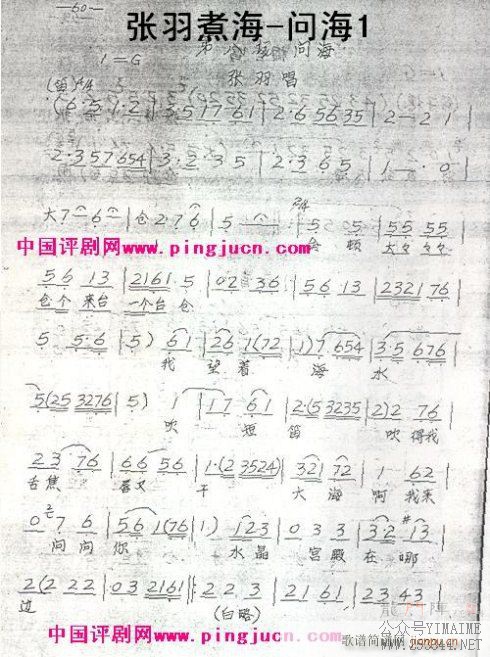 -60-
张羽煮海-问海1
1=G
张羽唱
(6·5 1·2 | 5·5 1 7 6 1 | 2·6 5 6 3 5 | 2 — 2 1 |
2·3 5 7 6 5 4 | 3·2 3 5 | 2·3 6 5 | 1 — · 0 |
大 7 — 6 — | 仓 2 7 6 | 5 — | 2/4 5 5 | 5 5 5 5 |
中国评剧网www.pingjucn.com
5 6 1 3 | 2 1 6 1 5 | 0 2 3 6 | 5 6 1 3 | 2 3 2 1 7 6 |
仓 个 来 台 一 个 台 仓
5 5·6 | 5) 6 1 | 2 6 1 (7 2 | 1) 7 6 5 4 | 3 5 6 7 6 |
我 望 着 海 水
5 (2 5 3 2 7 6 | 5) 1 | 1 7 6 1 | 2·(5 3 2 3 5 | 2) 2 7 6 |
吹 短 笛 吹 得 我
2 3 7 6 | 6 6 5 6 | 1·(2 3 5 2 4) | 3 2 1 7 2 | 1 6 2 |
舌 焦 唇 又 干 大 海 啊 我 来
0 7 6 | 5 6 1 (7 6 | 1) 1 2 3 | 0 3 3 | 3 2 #1 3 |
问 问 你 水 晶 宫 殿 在 哪
2 (2 2 2 | 0 3 2 1 6 1 |: 2 2 3 | 2 1 6 1 | 2 3 4 3 |
边 (白略)
中国评剧网www.pingjucn.com
歌谱简谱网 jianpu.cn
公众号YIMAIME
WWW.233844.NET